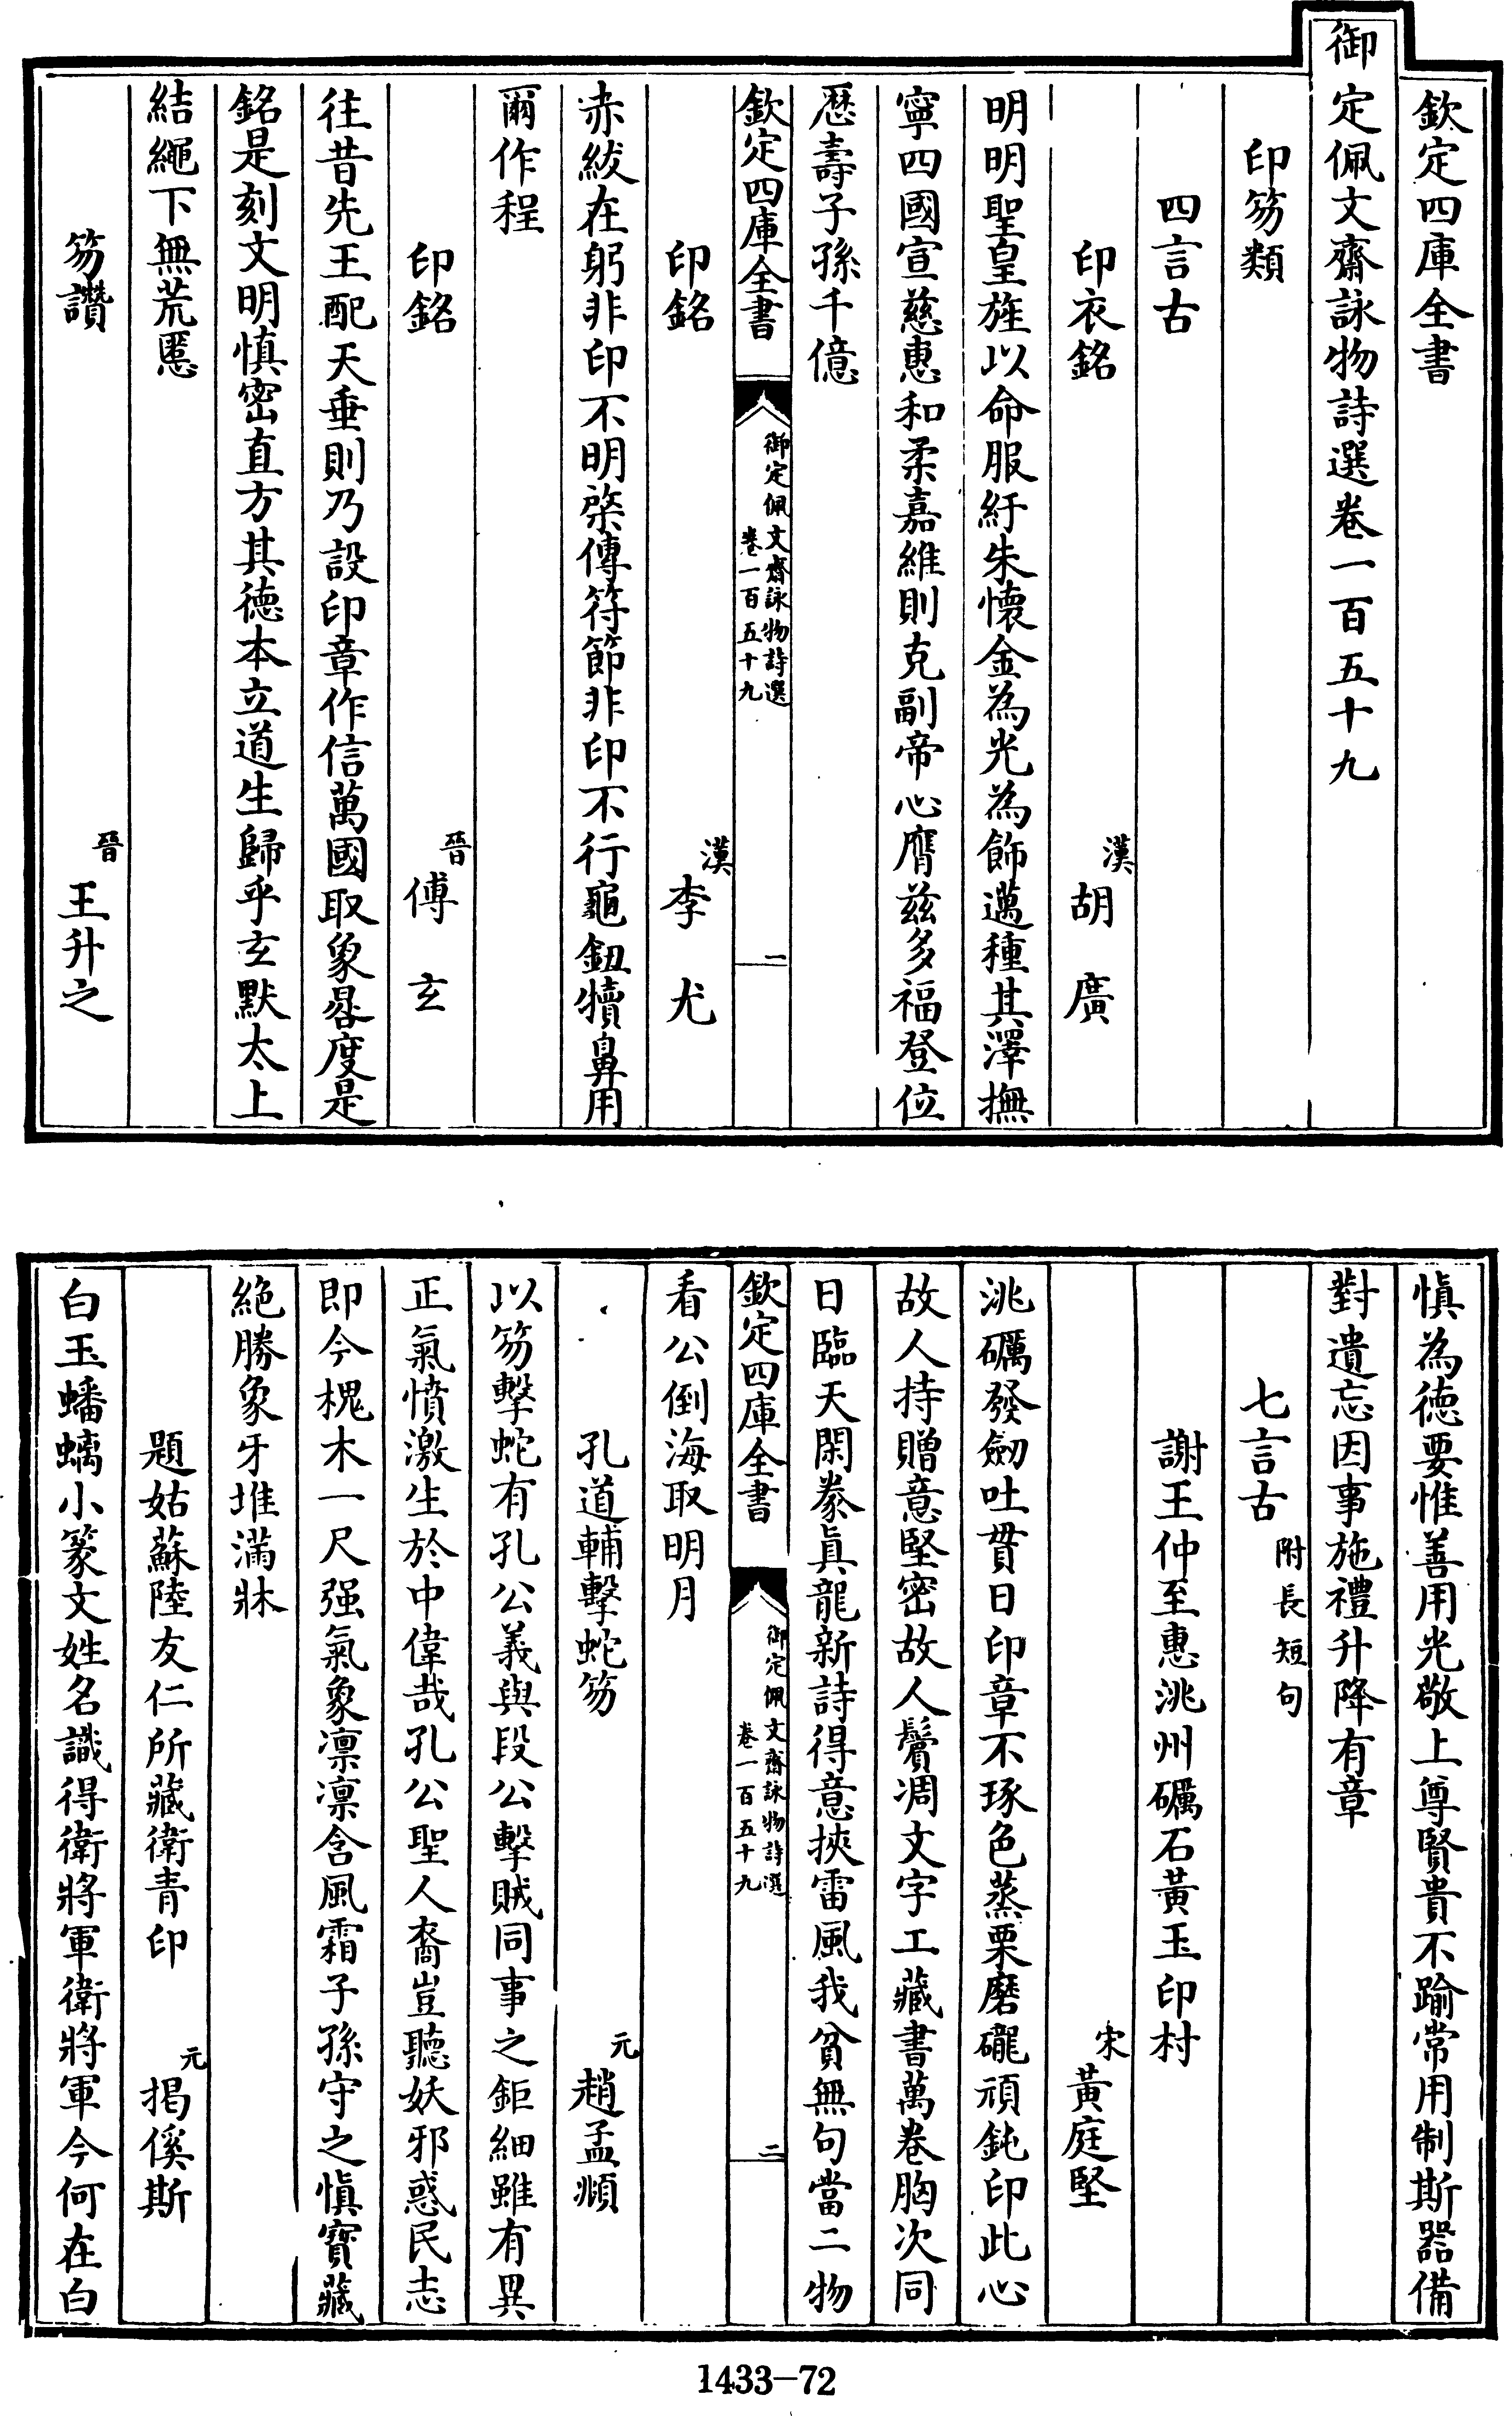 欽定四庫全書
御定佩文齋詠物詩選卷一百五十九
印笏類
四言古
印衣銘
漢
胡廣
明明聖皇旌以命服紆朱懷金為光為飾邁種其澤撫
寧四國宣慈惠和柔嘉維則克副帝心膺兹多福登位
歴壽子孫千億
欽定四庫全書
御定佩文齋詠物詩選
卷一百五十九
一
印銘
漢
李尤
赤紱在躬非印不明棨傳符節非印不行龜鈕犢鼻用
爾作程
印銘
晉
傅玄
往昔先王配天垂則乃設印章作信萬國取象晷度是
銘是刻文明慎密直方其徳本立道生歸乎玄默太上
結繩下無荒慝
笏讚
晉
王升之
慎為徳要惟善用光敬上尊賢貴不踰常用制斯器備
對遺忘因事施禮升降有章
七言古
附長短句
謝王仲至惠洮州礪石黃玉印村
宋
黃庭堅
洮礪發劒吐貫日印章不琢色蒸栗磨礲頑鈍印此心
故人持贈意堅密故人鬢凋文字工藏書萬卷胸次同
日臨天閑豢真龍新詩得意挾雷風我貧無句當二物
欽定四庫全書
御定佩文齋詠物詩選
卷一百五十九
二
看公倒海取明月
孔道輔擊蛇笏
元
趙孟頫
以笏擊蛇有孔公義與段公擊賊同事之鉅細雖有異
正氣憤激生於中偉哉孔公聖人裔豈聽妖邪惑民志
即今槐木一尺强氣象凛凛含風霜子孫守之慎寶藏
絶勝象牙堆滿牀
題姑蘇陸友仁所藏衛青印
元
掲傒斯
白玉蟠螭小篆文姓名識得衛將軍衛將軍今何在白
1433-72